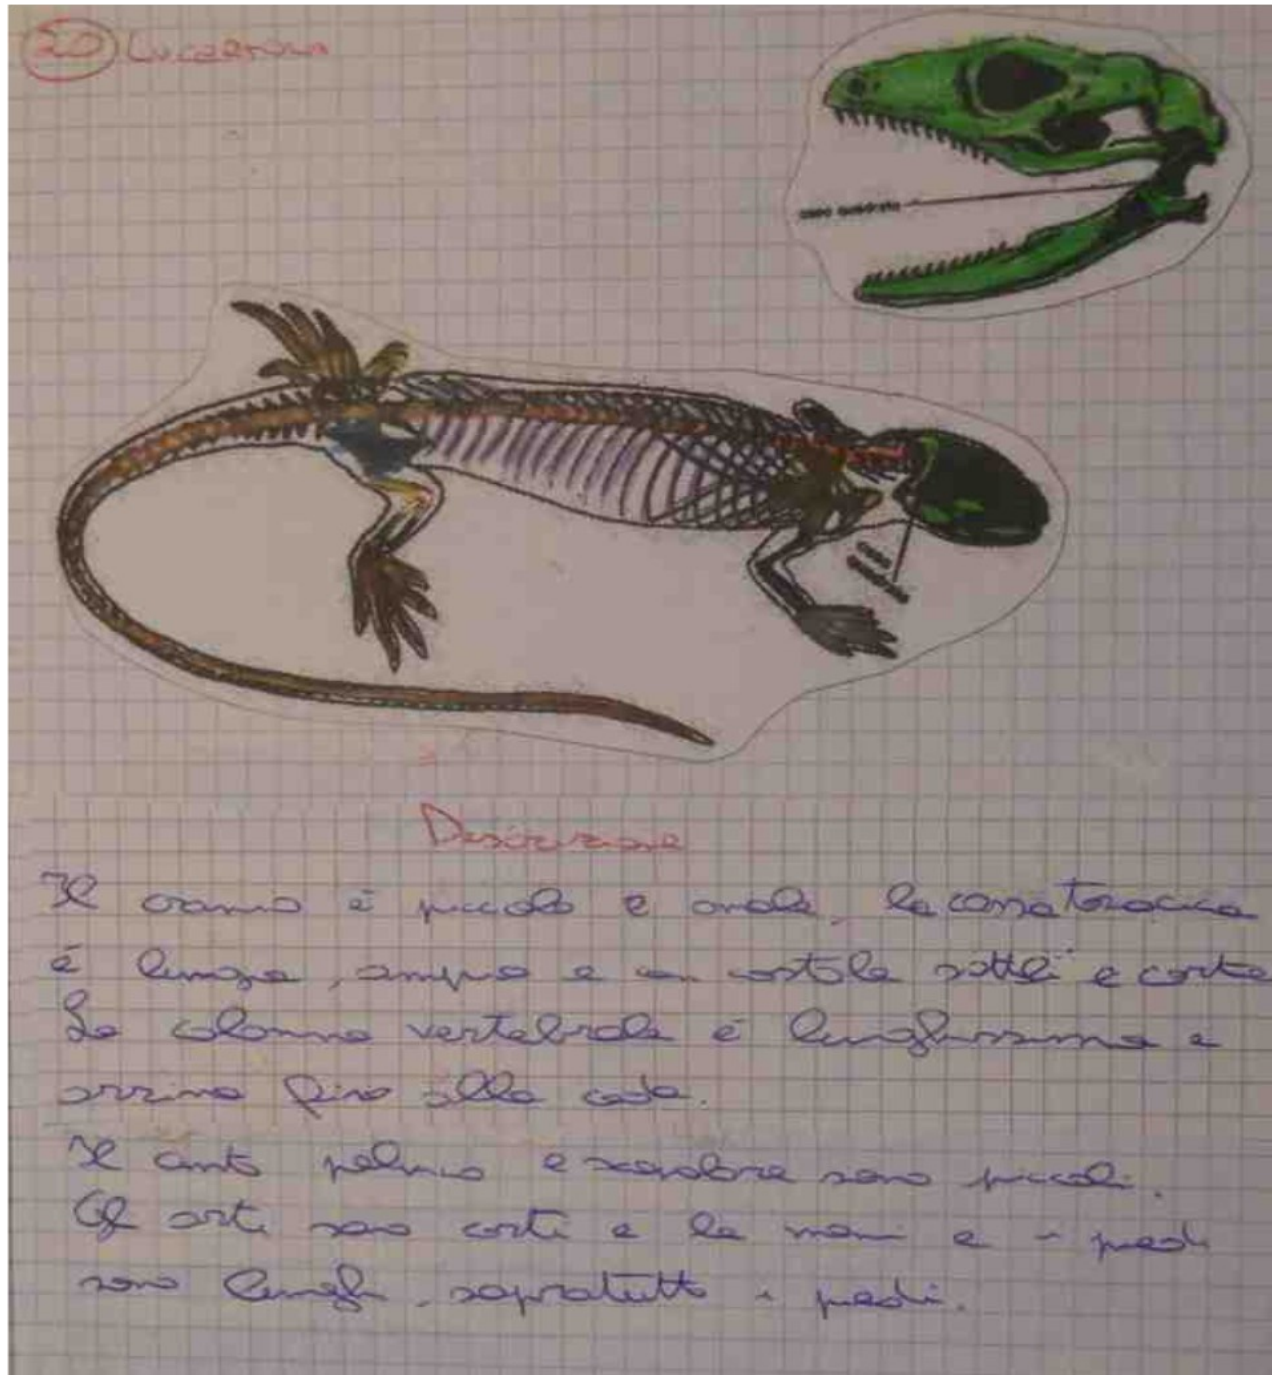 20 Lucertola
osso quadrato
osso
quadrato
Descrizione
Il cranio è piccolo e ovale, la cassa toracica
è lunga, ampia e con costole sottili e corte
La colonna vertebrale è lunghissima e
arriva fino alla coda.
Il cinto pelvico e scapolare sono piccoli.
Gli arti sono corti e le mani e i piedi
sono lunghi, sopratutto i piedi.